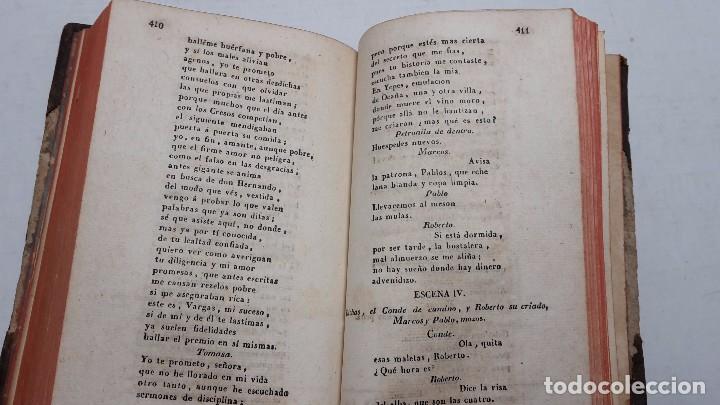 410
halléme huérfana y pobre,
y si los males alivian
agenos, yo te prometo
que hallara en otras desdichas
consuelos con que olvidar
las que propias me lastiman;
porque muchos que el dia antes
con los Cresos competian,
el siguiente mendigaban
puerta á puerta su comida;
yo, en fin, amante, aunque pobre,
que el firme amor no peligra,
como el falso en las desgracias,
antes gigante se anima
en busca de don Hernando,
del modo que vés, vestida,
vengo á probar lo que valen
palabras que ya son ditas;
sé que asiste aquí, no donde,
mas ya por tí conocida,
de tu lealtad confiada,
quiero ver como averiguan
tu diligencia y mi amor
promesas, que antes escritas
me causan rezelos pobre
si me aseguraban rica;
este es, Vargas, mi suceso,
si de mí y de él te lastimas,
ya suelen fidelidades
hallar el premio en sí mismas.
Tomasa.
Yo te prometo, señora,
que no he llorado en mi vida
otro tanto, aunque he escuchado
sermones de disciplina;
411
pero porque estés mas cierta
del secreto que me fias,
pues tu historia me contaste,
escucha tambien la mia.
En Yepes, emulacion
de Ocaña, una y otra villa,
donde muere el vino moro,
porque alla no le bautizan,
me criaron; mas qué es esto?
Petronila de dentro.
Huespedes nuevos.
Marcos.
Avisa
la patrona, Pablos, que eche
lana blanda y ropa limpia.
Pablo
Llevaremos al meson
las mulas.
Roberto.
Si está dormida,
por ser tarde, la hostalera,
mal almuerzo se me aliña;
no hay sueño donde hay dinero
advenidizo.
ESCENA IV.
el Conde de camino, y Roberto su criado,
Marcos y Pablo, mozos.
Conde.
Ola, quita
esas maletas, Roberto.
¿Qué hora es?
Roberto.
Dice la risa
del alba, que son las cuatro.
todocoleccion